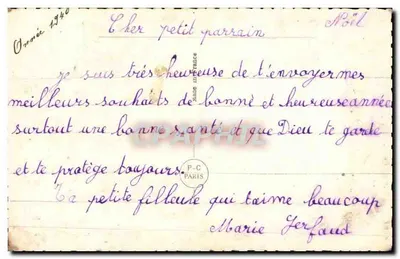 Année 1940
Cher petit parrain
Noël
Je suis très heureuse de t'envoyer mes
meilleurs souhaits de bonne et heureuse année
surtout une bonne santé et que Dieu te garde
et te protège toujours.
P-C
PARIS
Ta petite filleule qui t'aime beaucoup
Marie